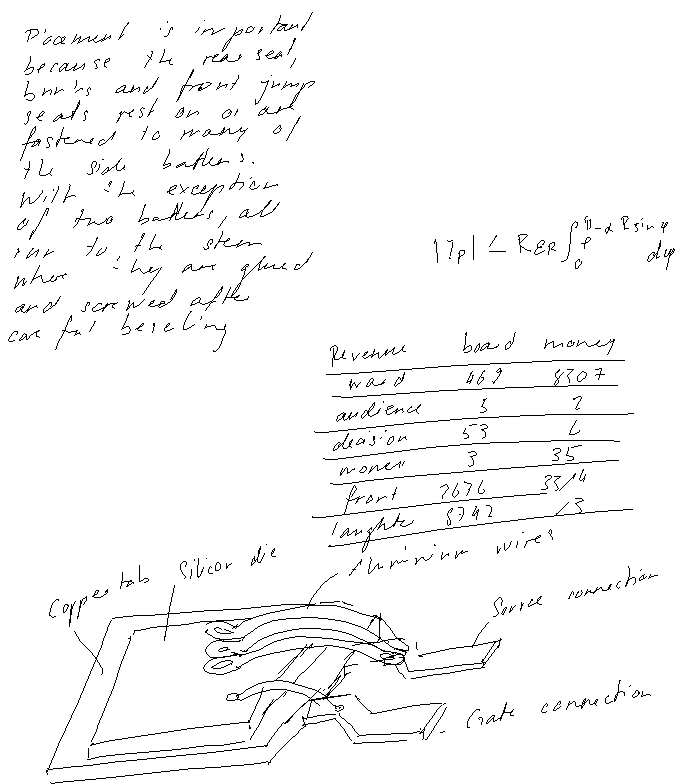 Placement is important
because the rear seat,
bunks and front jump
seats rest on or are
fastened to many of
the side battens.
With the exception
of two battens, all
run to the stem
where they are glued
and screwed after
careful beveling
|I_P| ≤ R ε_R ∫_0^{π-α} e^{R sin φ} dφ
Revenue board money
ward 469 8307
audience 5 2
decision 53 6
women 3 35
front 7676
laughter 8742 13
Copper tab
Silicon die
Aluminium wires
Source connection
Gate connection